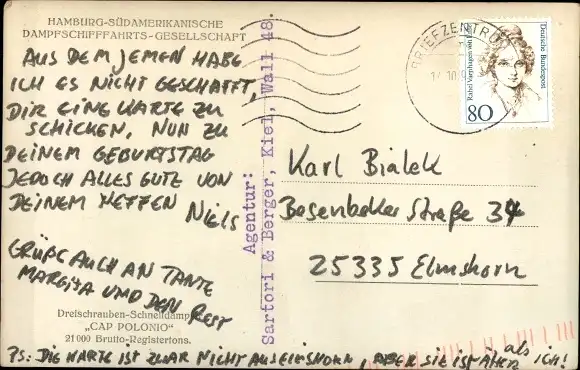 HAMBURG-SÜDAMERIKANISCHE
DAMPFSCHIFFFAHRTS-GESELLSCHAFT
AUS DEM JEMEN HABE
ICH ES NICHT GESCHAFFT,
DIR EINE KARTE ZU
SCHICKEN. NUN ZU
DEINEM GEBURTSTAG
JEDOCH ALLES GUTE VON
DEINEM NEFFEN NIELS
GRÜßE AUCH AN TANTE
MARGITA UND DEN REST
Dreischrauben-Schnelldampfer
„CAP POLONIO"
21000 Brutto-Registertons.
PS: DIE KARTE IST ZWAR NICHT AUS ELMSHORN, ABER SIE IST ÄLTER als ICH!
Agentur:
Sartori & Berger, Kiel, Wall 48.
BRIEFZENTRUM
Deutsche Bundespost
Rahel Varnhagen von
80
Karl Bialek
Besenbeker Straße 34
25335 Elmshorn